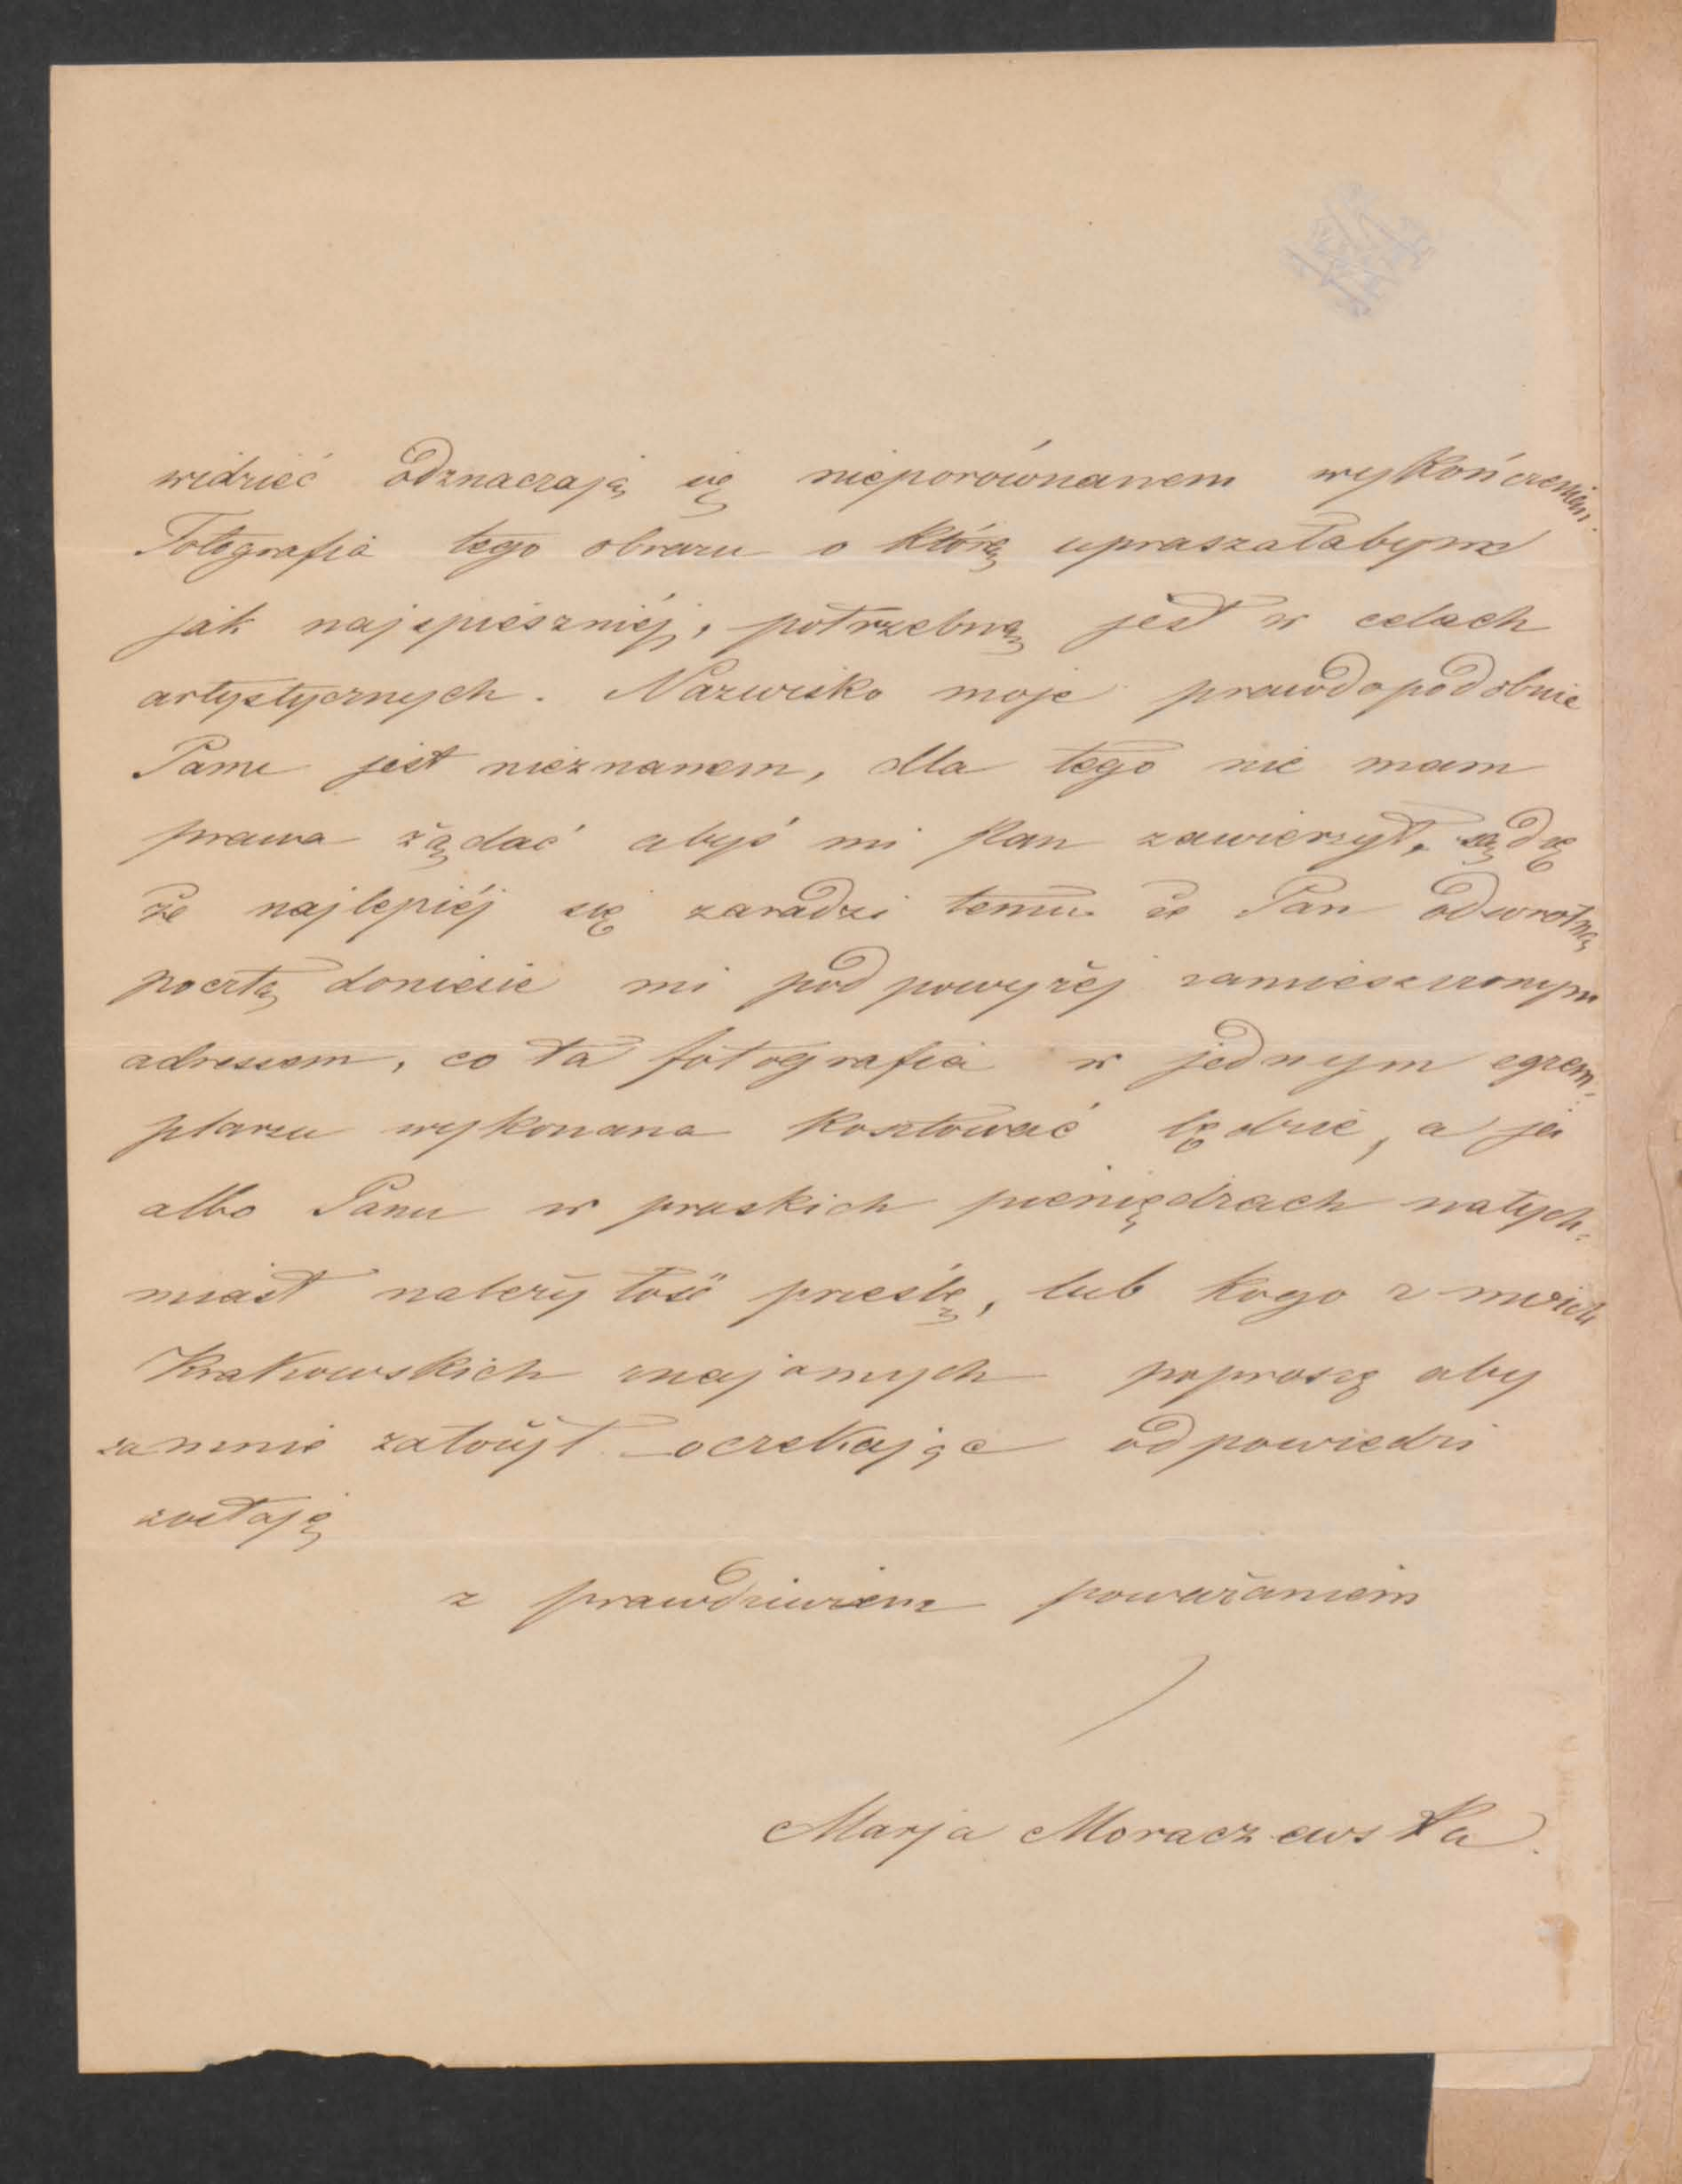 widzieć odznaczają się nieporównanem wykończeniem.
Fotografia tego obrazu o którą upraszałabym
jak najspieszniéj, potrzebną jest w celach
artystycznych. Nazwisko moje prawdopodobnie
Panu jest nieznanem, dla tego nie mam
prawa żądać abyś mi Pan zawierzył, sądzę
że najlepiéj się zaradzi temu że Pan odwrotną
pocztą doniesie mi pod powyżéj zamieszczonym
adressem, co ta fotografia w jednym egzem-
plarzu wykonana kosztować będzie, a ja
albo Panu w pruskich pieniędzach natych-
miast należytość prześlę, lub kogo z moich
Krakowskich znajomych poproszę aby
za mnie założył oczekając odpowiedzi
zostaję
z prawdziwem poważaniem
Marja Moraczewska.